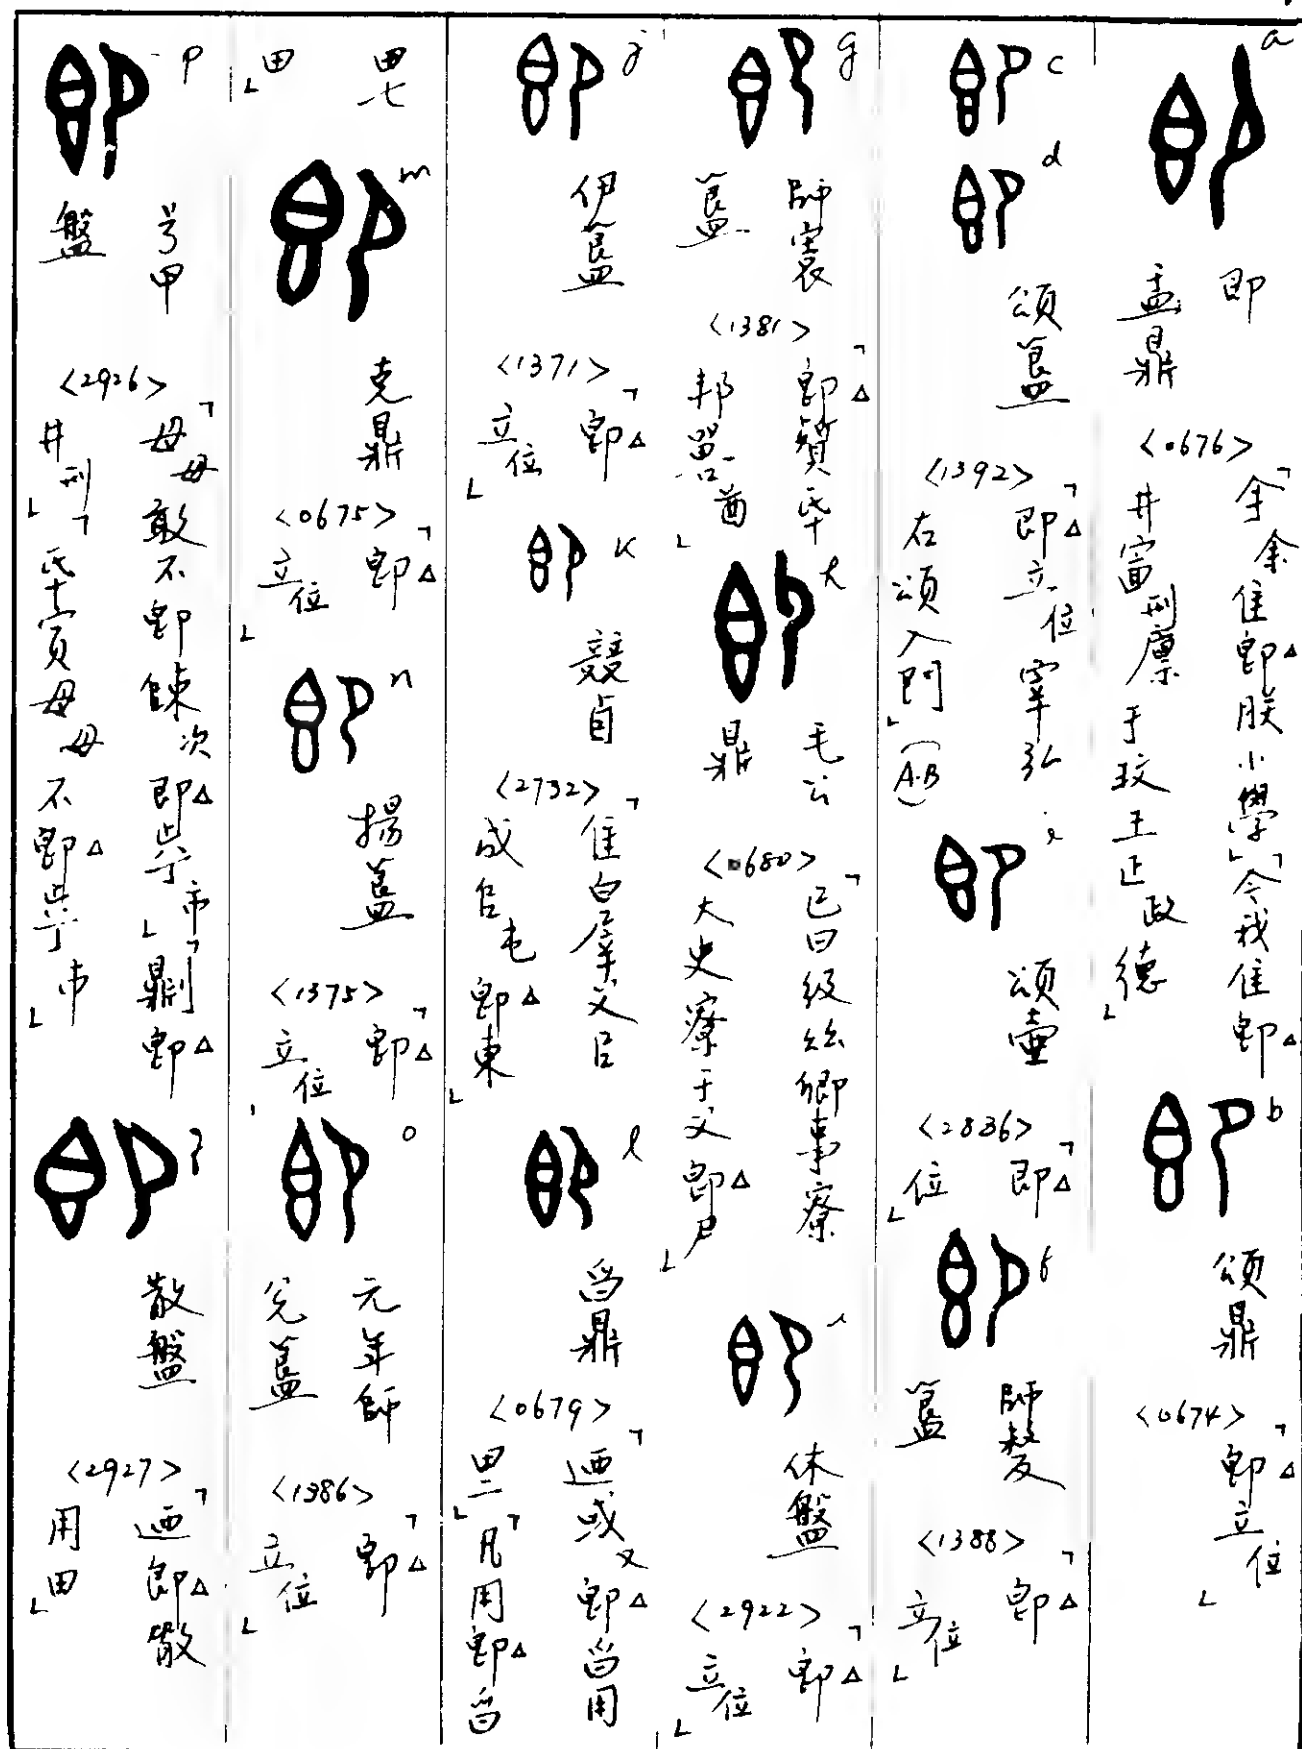 a
即
盂鼎
<0676>
「余余隹即△朕小學」「令我隹即△
井㐭刑廩于玟王正政德」
b
頌鼎
<0674>
「即△立位」
c
d
頌簋
<1392>
「即△立位宰弘
右頌入門」(A.B)
頌壺
<2836>
「即△
位」
f
師𠭰
簋
<1388>
「即△
立位」
g
師寰
簋
<1381>
「即△質氒
邦酋」
毛公
鼎
<0680>
「已曰彶𢆶卿事寮
大史寮于父即△尹」
i
休盤
<2922>
「即△
立位」
j
伊簋
<1371>
「即△
立位」
k
競卣
<2732>
「隹白犀父㠯
成𠂤即△東」
l
曶鼎
<0679>
「迺或又即△曶用
田二」「凡用即△曶
田七
田」
m
克鼎
<0675>
「即△
立位」
n
揚簋
<1375>
「即△
立位」
o
元年師
兌簋
<1386>
「即△
立位」
p
兮甲
盤
<2926>
「母毋敢不即次即△市」「即△
井刑」「氒賈母毋不即△市」
散盤
<2927>
「迺即△散
用田」